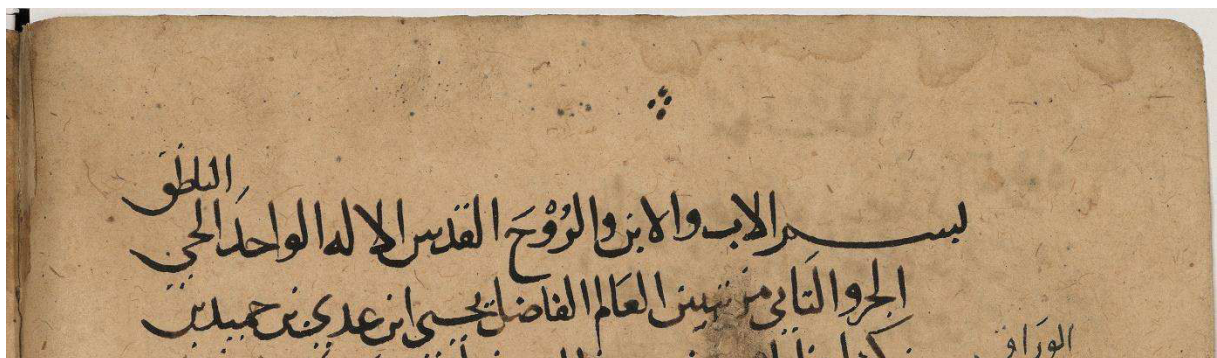 بسم الاب والابن والرُوْحَ القدس الاله الواحد الحي
الناطق
الجزو الثاني من تبيين العالم الفاضل يحيى ابن عدي بن حميد بن
الوراق